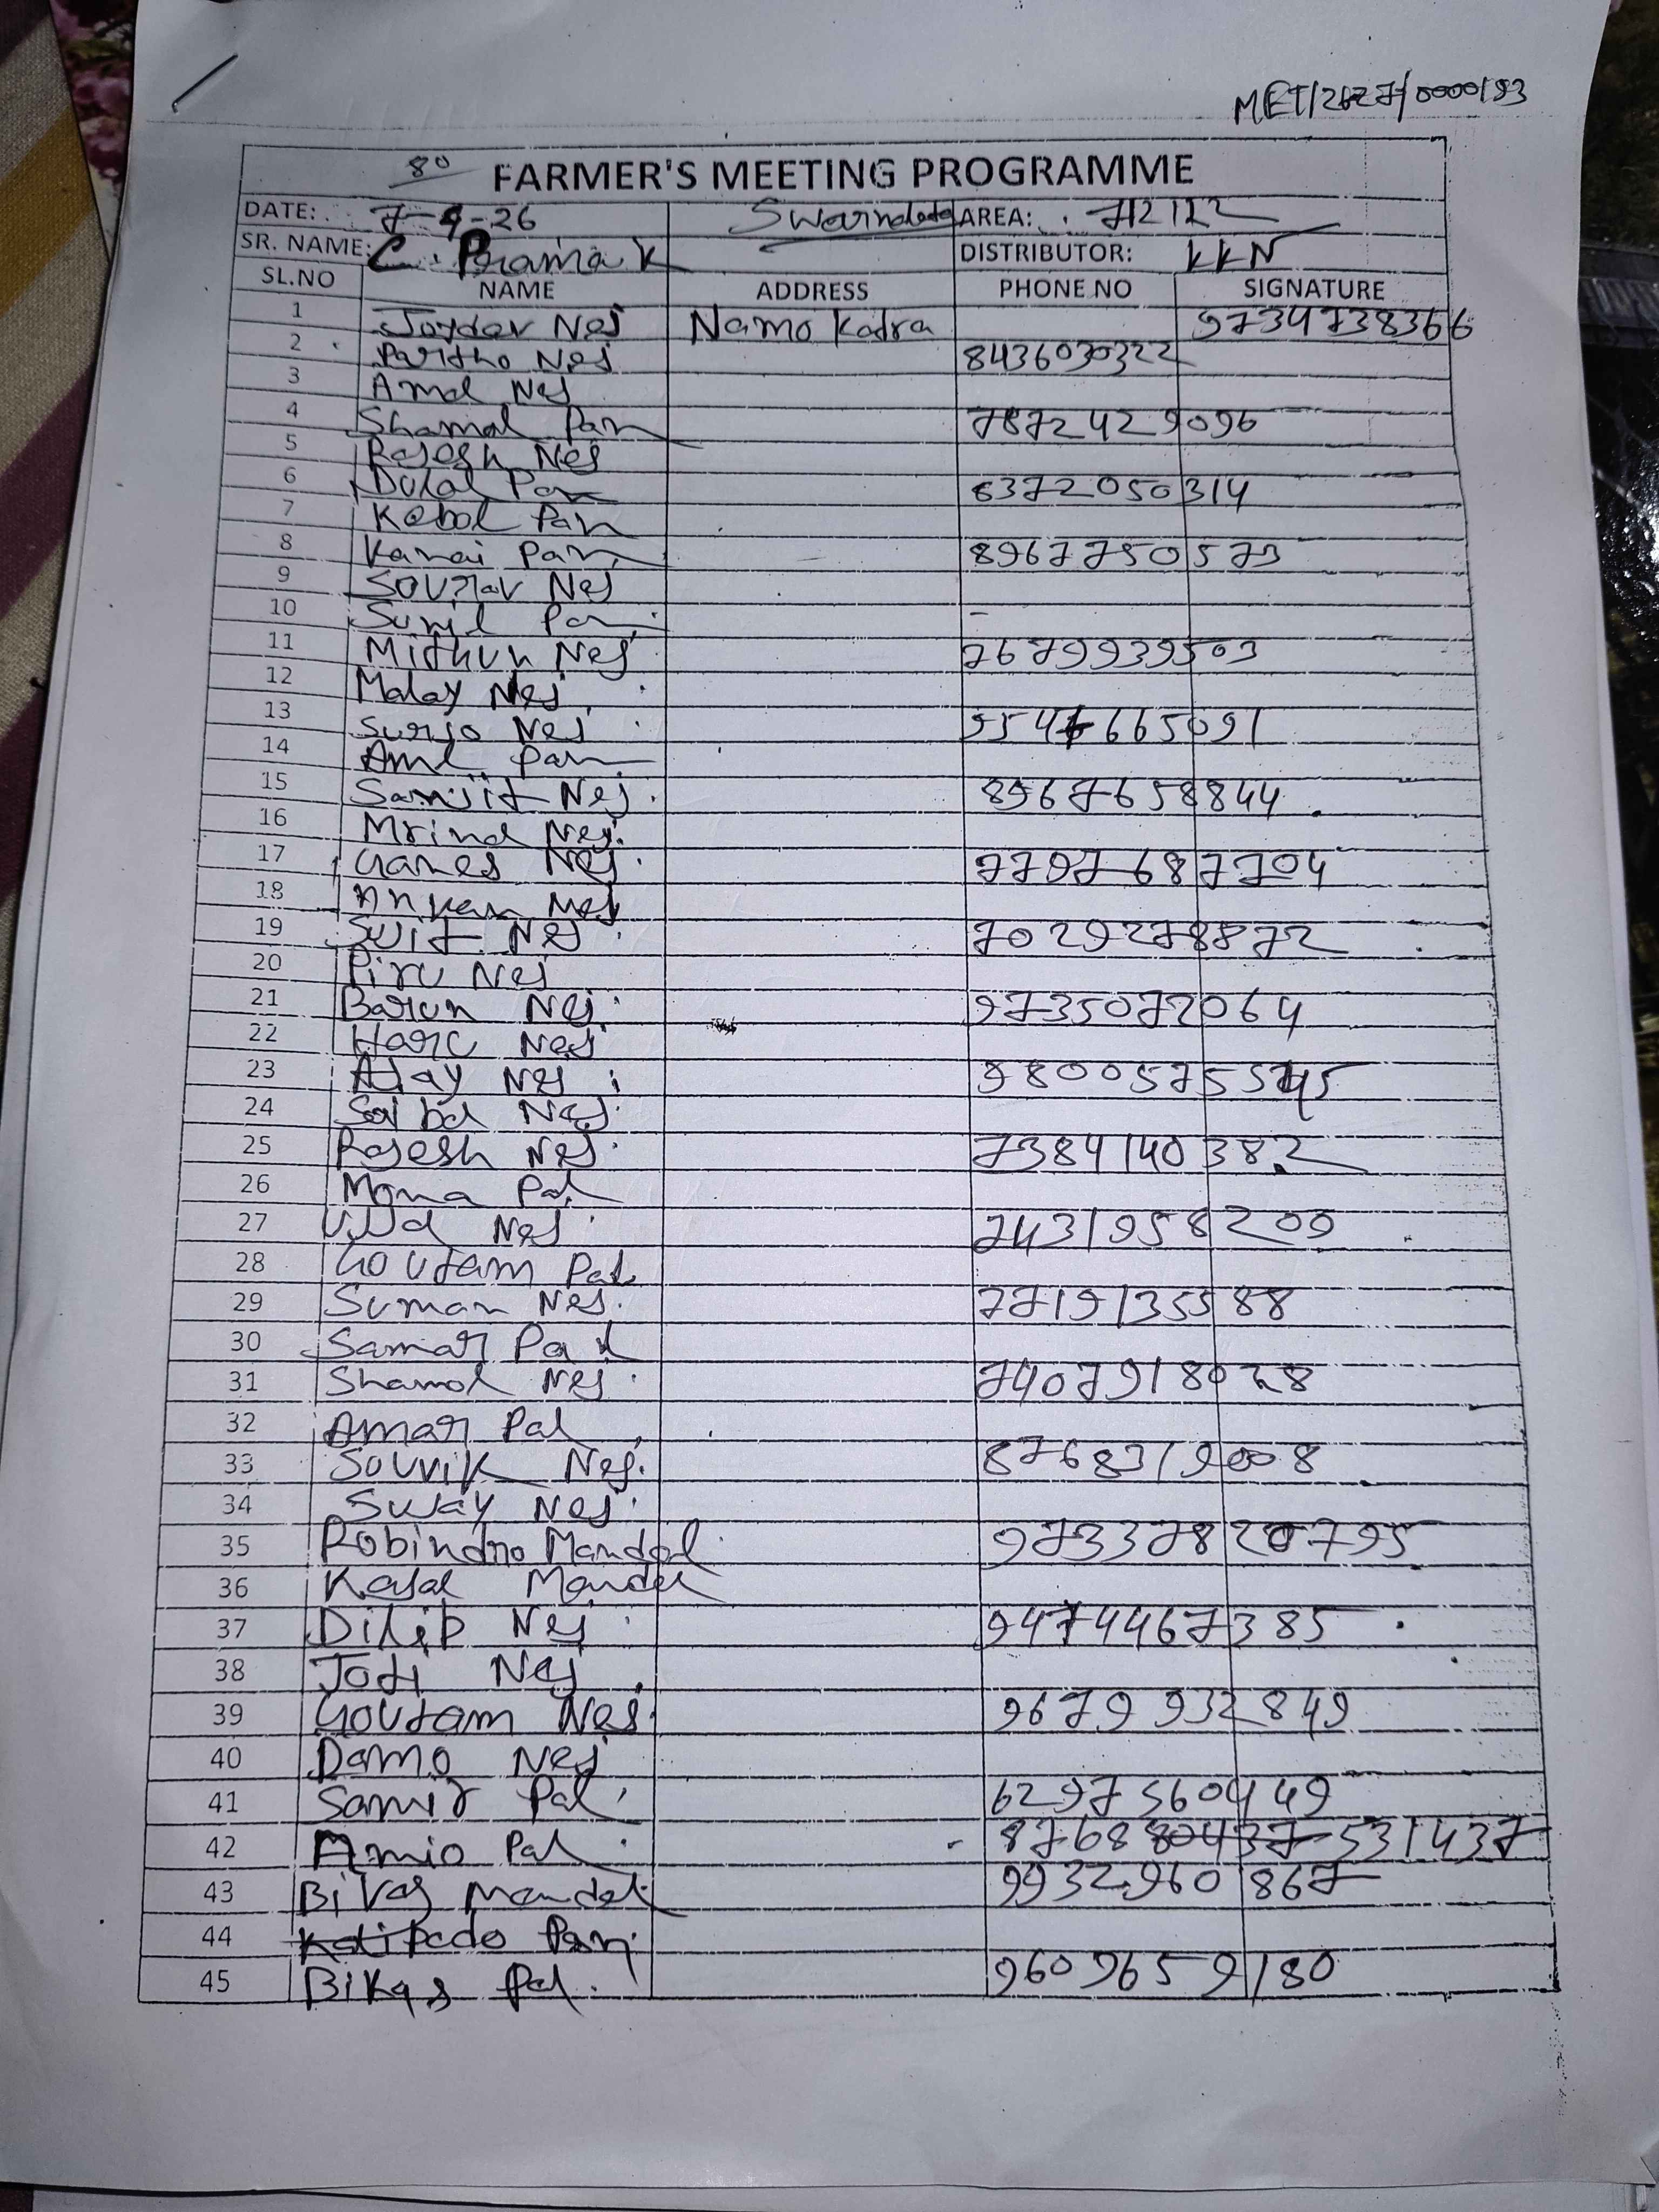 MET/2627/0000193
80
FARMER'S MEETING PROGRAMME
DATE: 7-4-26 Swarndeta AREA: 712122
SR. NAME: C. Pramak DISTRIBUTOR: KKN
SL.NO NAME ADDRESS PHONE NO SIGNATURE
1 Joydev Nej Namo Kadra 9734738366
2 Partho Nej 8436030322
3 Amal Nej
4 Shamal Pan 7872429096
5 Rajesh Nej
6 Dulal Pan 6372050314
7 Kebol Pan
8 Kanai Pan 8967750573
9 Sourav Nej
10 Sunil Pan -
11 Mithun Nej 7679939503
12 Malay Nej
13 Surjo Nej 9547665091
14 Aml Pan
15 Samjit Nej. 8967658844
16 Mrinal Nej.
17 Ganes Nej 7797687704
18 Ankan Nej
19 Sujit Nej 7029278872
20 Piru Nej
21 Barun Nej 9735072064
22 Haru Nej
23 Ajay Nej 9800575545
24 Nej
25 Rajesh Nej 7384140382
26 Mona Pal
27 Nej 7431958200
28 Goutam Pal
29 Suman Nej. 7719135588
30 Samar Pal
31 Shamol Nej 7407918028
32 Amar Pal
33 Souvik Nej. 8768319008
34 Sujay Nej
35 Robindro Mandal 97337820795
36 Kajal Mandal
37 Dilip Nej 9474467385
38 Joti Nej
39 Goutam Nej. 9679932849
40 Damo Nej
41 Samir Pal 6297560449
42 Amio Pal 8768 531437
43 Bikas Mandal 9932960867
44 Kalipado Pan
45 Bikas Pal. 9609659180